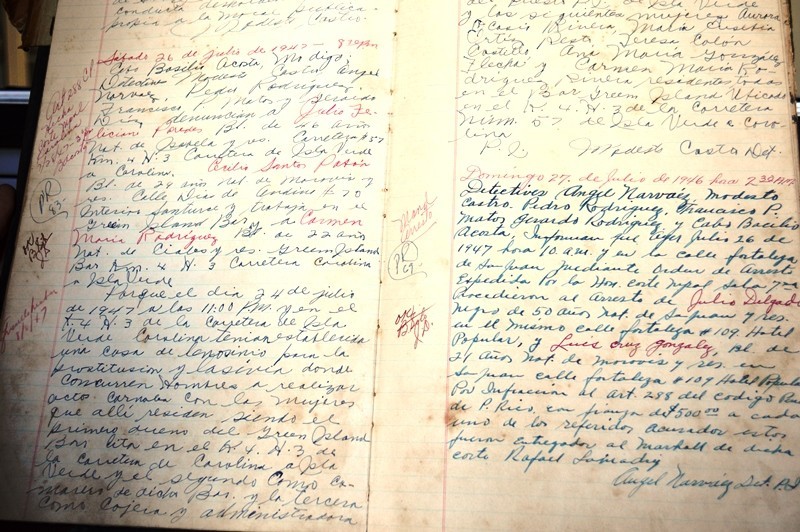 conducta desho
propia a la Moral publica
Modesto Castro
Sabado 26 de Julio de 1947 — 8:30 PM
Cabo Basilio Acosta, Modigo,
Detectives Modesto Castro, Angel
Narvaez, Pedro Rodriguez,
Francisco P. Matos y Gerardo
Diaz denuncian a Julio Fe-
liciani Paredes Bl. de 26 años
Nat. de Isabela y res. Carretera #57
Km. 4 H. 3 Carretera de Isla Verde
a Carolina. Cecilio Santos Pabón
Bl. de 29 años Nat. Morovis y
res. Calle Dias de Andino # 70
Interior Santurce y trabaja en el
Green Island Bar y a Carmen
Maria Rodriguez Bl. de 22 años
Nat. de Ciales y res. Green Island
Bar Km. 4 H. 3 Carretera Carolina
a Isla Verde
Porque el dia 24 de julio
de 1947 a las 11:00 P.M. y en el
K. 4 H. 3 de la Carretera de Isla
Verde Carolina tenian establecida
una casa de lenosinio para la
prostitusion y lasivia donde
concurren Hombres a realizar
actos Carnales con las Mujeres
que alli residen siendo el
primero dueño del Green Island
Bar sita en el K. 4 H. 3 de
la carretera de Carolina a Isla
Verde y el segundo como Ca-
marero de dicho Bar. y la tercera
como Cajera y administradora
Art 288 CP
PR
83
8/1/47
del Puesto P.I. de Isla Verde
y las siguientes mujeres Aurora
Ocasio Rivera Maria Eusebia
Ortiz Resto Teresa Colón
Castello Ana Maria González
Flecha y Carmen Maria Ro-
driguez Rivera residentes todas
en el Bar Green Island Ubicado
en el K. 4 H. 3 de la Carretera
Núm. 57 de Isla Verde a Caro-
lina
P.I. Modesto Castro Det.
Domingo 27 de Julio de 1946 hora 2:30 P.M.
Detectives Angel Narvaiz Modesto
Castro. Pedro Rodriguez, Francisco P.
Matos Gerardo Rodriguez y Cabo Bacilio
Acosta. Informan que ayer Julio 26 de
1947 hora 10 A.M. y en la calle fortaleza
de San Juan mediante Orden de Arresto
Expedida Por la Hon. corte Mpal Sala 7ma
Procedieron al Arresto de Julio Delgado
Negro de 50 años Nat. de San Juan y Res.
en el Mismo calle fortaleza #109 Hotel
Popular, y Luis Cruz Gonzalez, Bl. de
21 años Nat. de Morovis y res. en
San Juan calle fortaleza #109 Hotel Popular
Por Infracion al Art. 288 del codigo Penal
de P. Rico, con fianza de $500.00 a cada
uno de los referidos Acusados estos
fueron entregados al Marshall de dicha
corte Rafael
Angel Narvaiz Det. P.I.
Arresto
PR
69